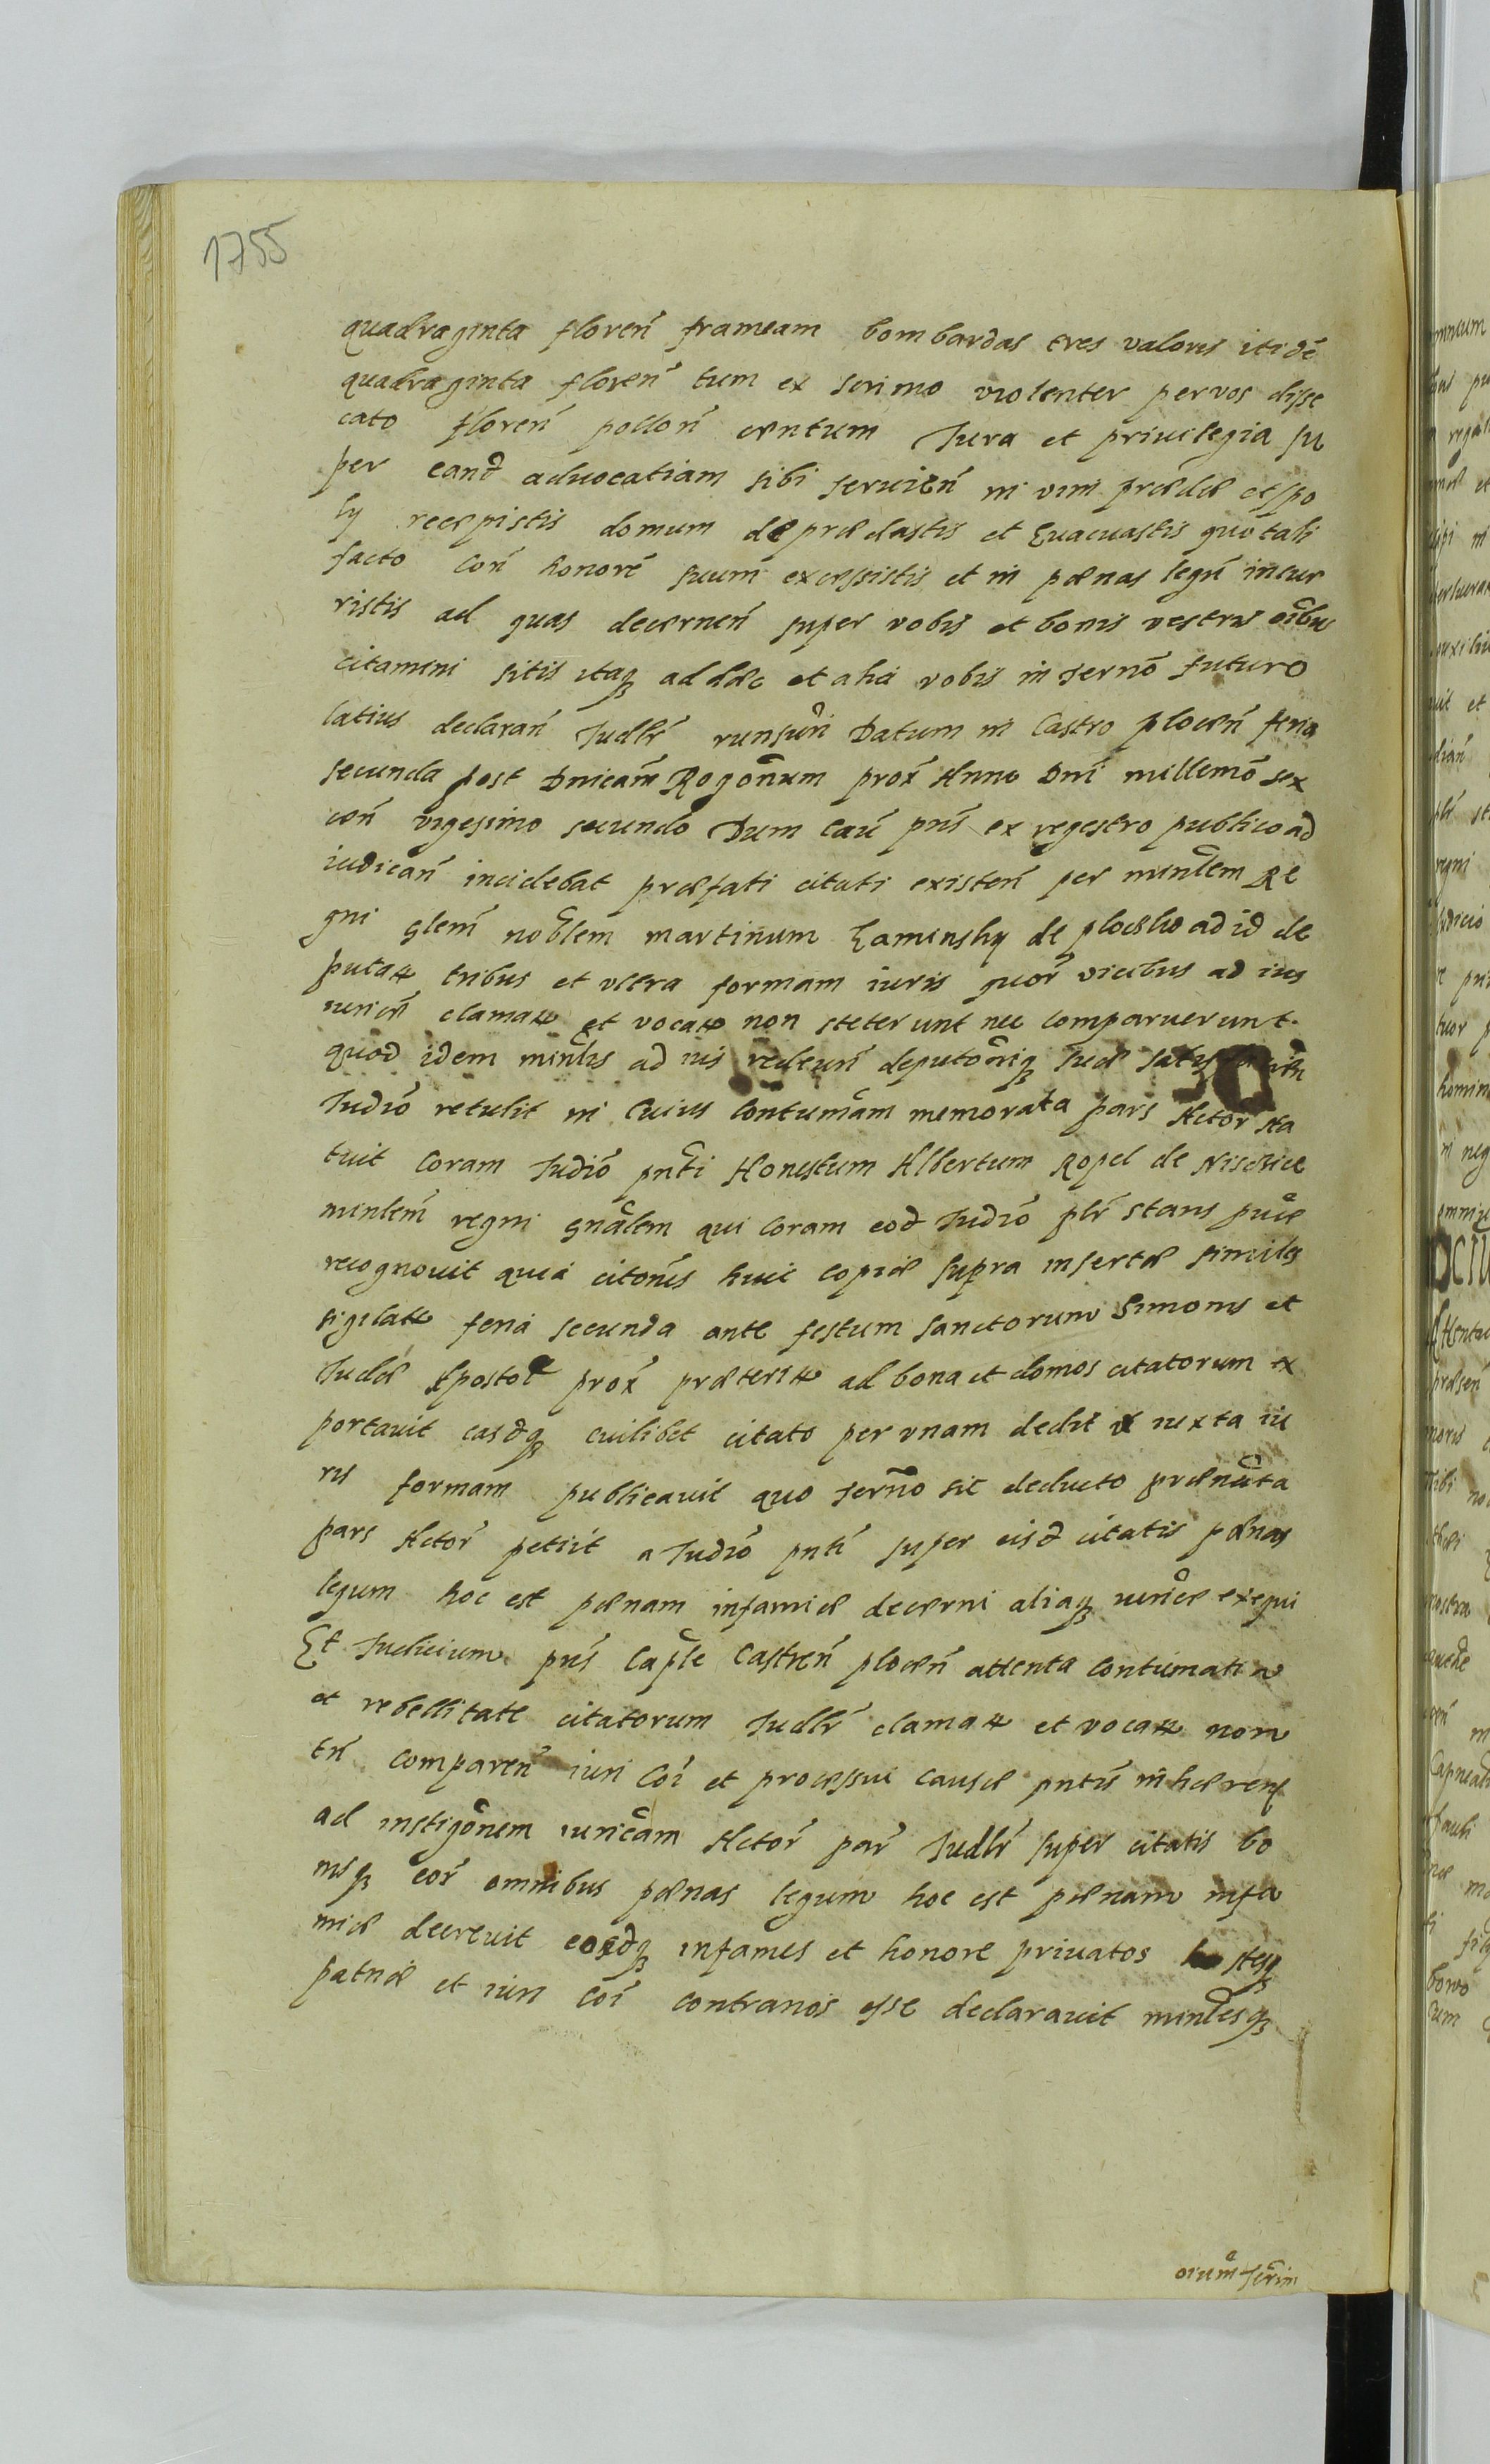 1755
quadraginta floren̄ frameam bombardas tres valoris itidē
quadraginta floren̄ tum ex scrinio violenter per vos disse
cato floren̄ pollon̄ centum Iura et priuilegia su
per eand advocatiam sibi seruien̄ in vim prædæ et spo
ly recæpistis domum deprædastis et Euacuastis quo tali
facto con̄ honorē suum excæssistis et in pænas legū incur
ristis ad quas decærnen̄ super vobis et bonis vestris oībus
citamini sitis itaq ad hæc et alia vobis in termō futuro
latius declaran̄ Iudlr̄ runsuri Datum in Castro plocen̄ feria
secunda post Dnicam̄ Rogonum prox̄ Anno Dnī millemō sex
cen̄ vigesimo secundo Dum cau pn̄s ex regestro publico ad
iudican̄ incidebat præfati citati existen̄ per minlem Re
gni glem̄ noblem martinum de ploczko ad id de
putatt tribus et vltra formam iuris quor̄ vicibus ad ius
iuricē clamatt et vocatt non steterunt nec comparuerunt.
quod idem minlis ad ius redeun̄ deputoniq suæ
Iudiō retulit in Cuius Contumam memorata pars Actor sta
tuit Coram Iudiō pn̄ti Honestum Albertum Ropel de
minlem̄ regni gnālem qui Coram eod Iudiō plr̄ stans
recognouit quia citonis huic copiæ supra insertæ similes
sigilatt feria secunda ante festum Sanctorum Simonis et
Iudæ Apostol prox̄ præteritt ad bona et domos citatorum ex
portauit easdq cuilibet citato per vnam dedit iuxta iu
ris formam publicauit quo termō sic deducto prænōta
pars Actor̄ petiit a Iudiō pn̄ti super eisd citatis pænas
legum hoc est pænam infamiæ decærni aliaq iuricē exequi
Et Iudicium pn̄s Caple Castren̄ plocen̄ attenta contumatia
et rebellitate citatorum Iudlr̄ clamatt et vocatt non
tn̄ comparen̄ iuri Coī et processui causæ pn̄tis inhæren
ad instigonem iuricam Actor̄ par̄ Iudlr̄ super citatis bo
nisq eor̄ omnibus pænas legum hoc est pænam infa
miæ decreuit eosdq infames et honore priuatos hostesq
patriæ et iuri coī contrarios esse declarauit minlesq